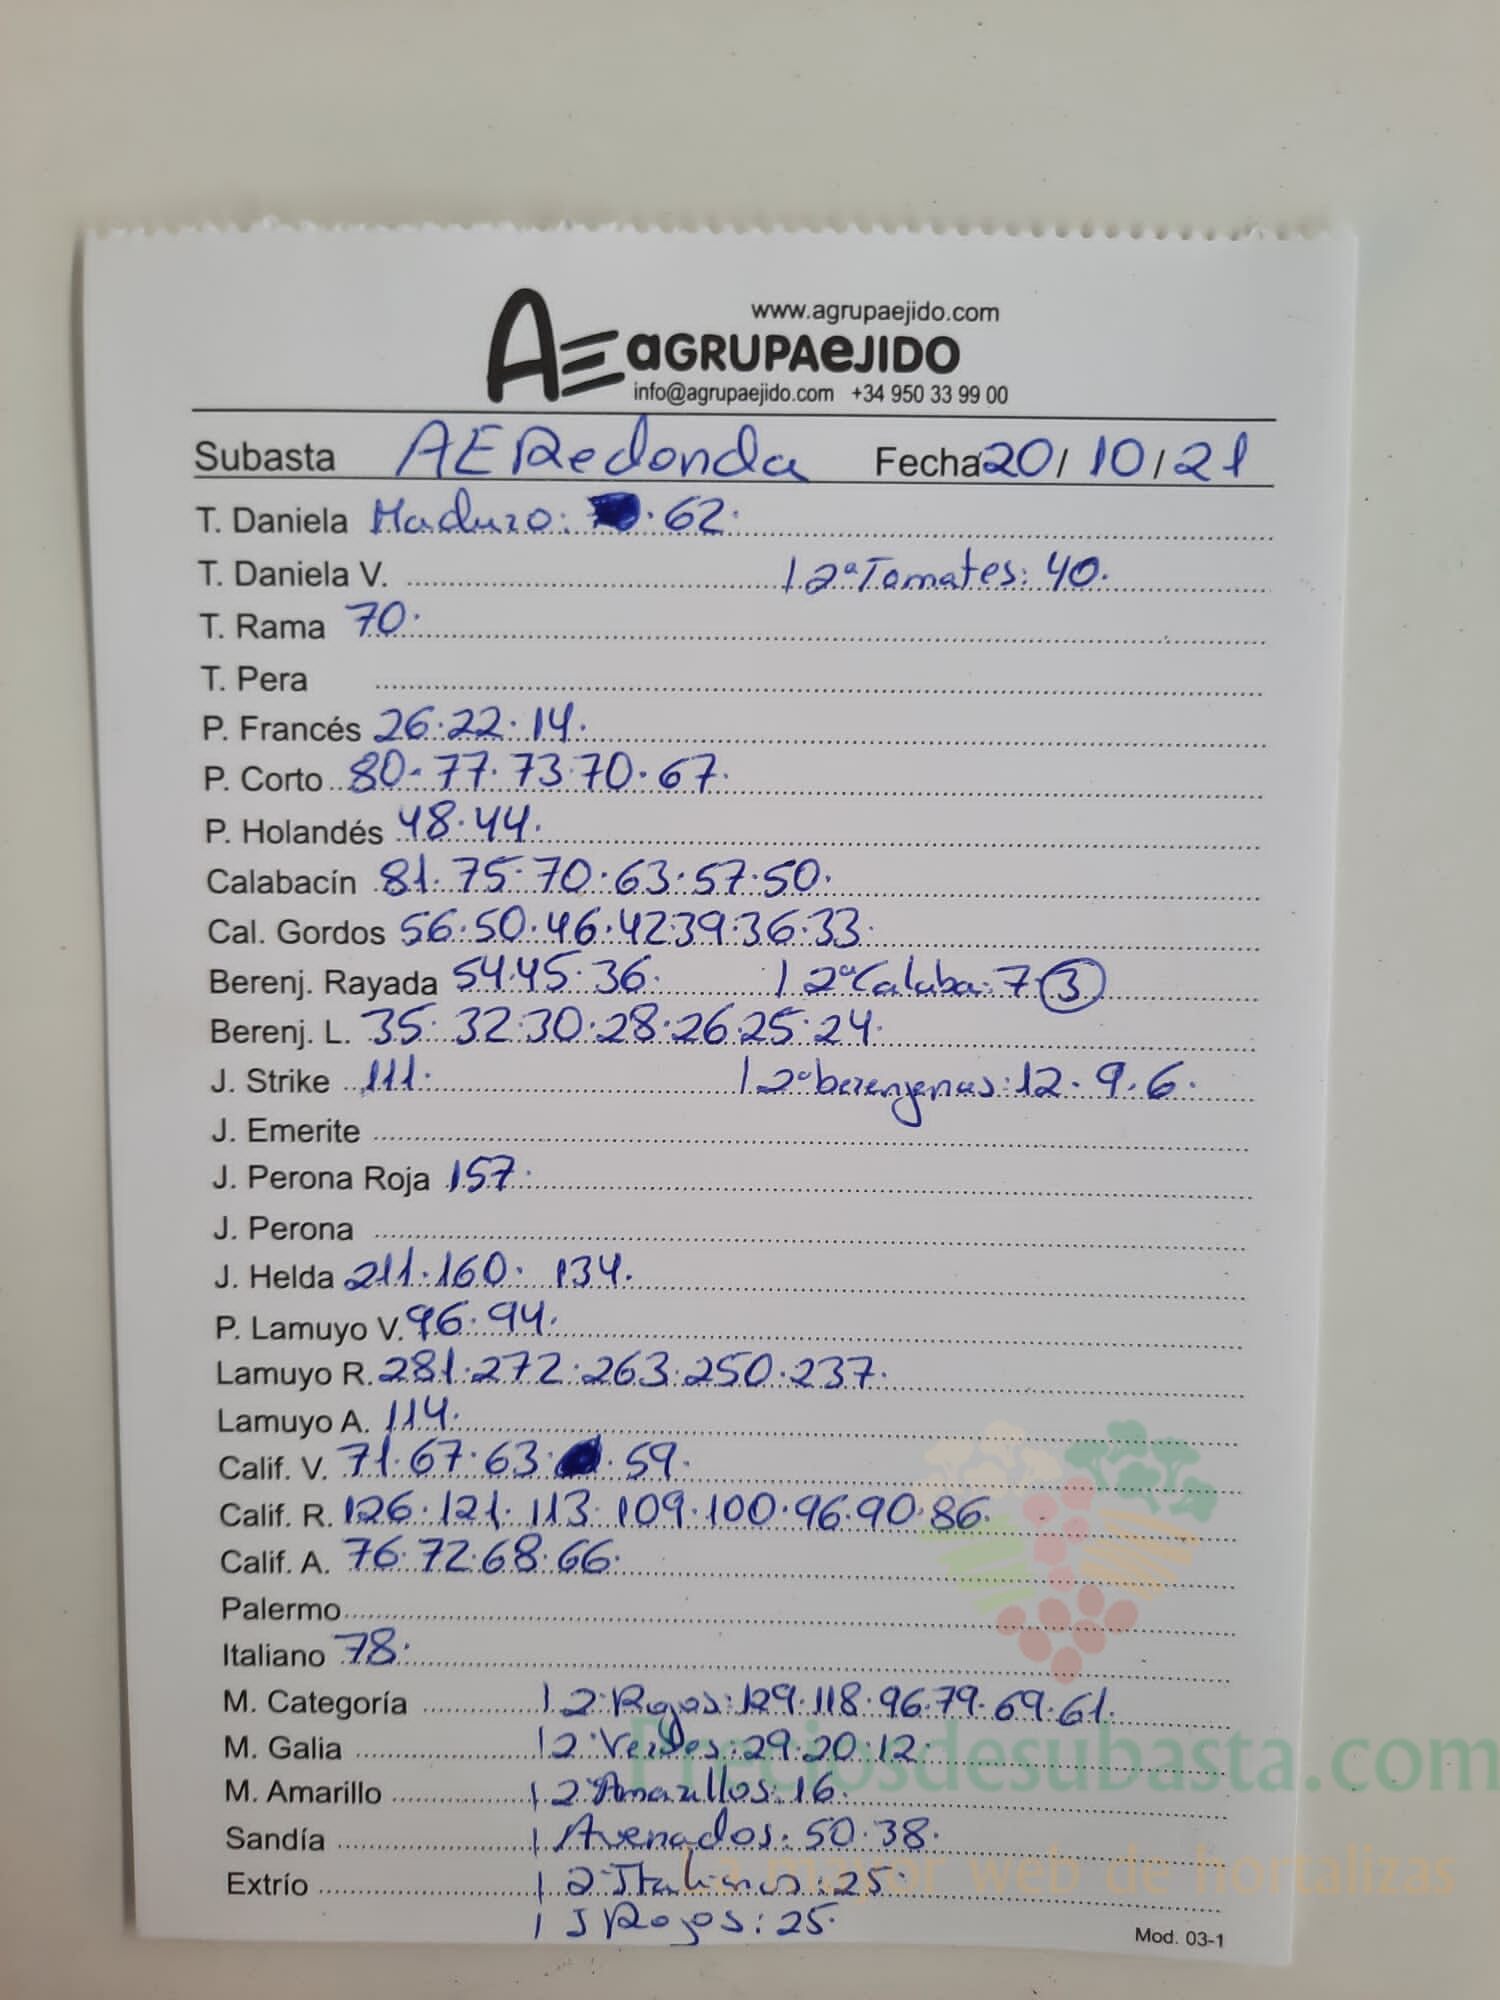 www.agrupaejido.com
AE aGRUPAeJIDO
info@agrupaejido.com +34 950 33 99 00
Subasta AE Redonda Fecha 20/10/21
T. Daniela Maduro: 62.
T. Daniela V. | 2ª Tomates: 40.
T. Rama 70.
T. Pera
P. Francés 26.22.14.
P. Corto 80.77.73.70.67.
P. Holandés 48.44.
Calabacín 81.75.70.63.57.50.
Cal. Gordos 56.50.46.42.39.36.33.
Berenj. Rayada 54.45.36. | 2ª Calaba: 7.3
Berenj. L. 35.32.30.28.26.25.24.
J. Strike 111. | 2ª berenjenas: 12.9.6.
J. Emerite
J. Perona Roja 157.
J. Perona
J. Helda 211.160.134.
P. Lamuyo V. 96.94.
Lamuyo R. 281.272.263.250.237.
Lamuyo A. 114.
Calif. V. 71.67.63.59.
Calif. R. 126.121.113.109.100.96.90.86.
Calif. A. 76.72.68.66.
Palermo
Italiano 78.
M. Categoría | 2ª Rojos: 129.118.96.79.69.61.
M. Galia | 2ª Verdes: 29.20.12.
Preciosdesubasta.com
M. Amarillo | 2ª Amarillos: 16.
Sandía | Avenados: 50.38.
La mayor web de hortalizas
Extrío | 2ª Italianos: 25.
| J Rojos: 25.
Mod. 03-1